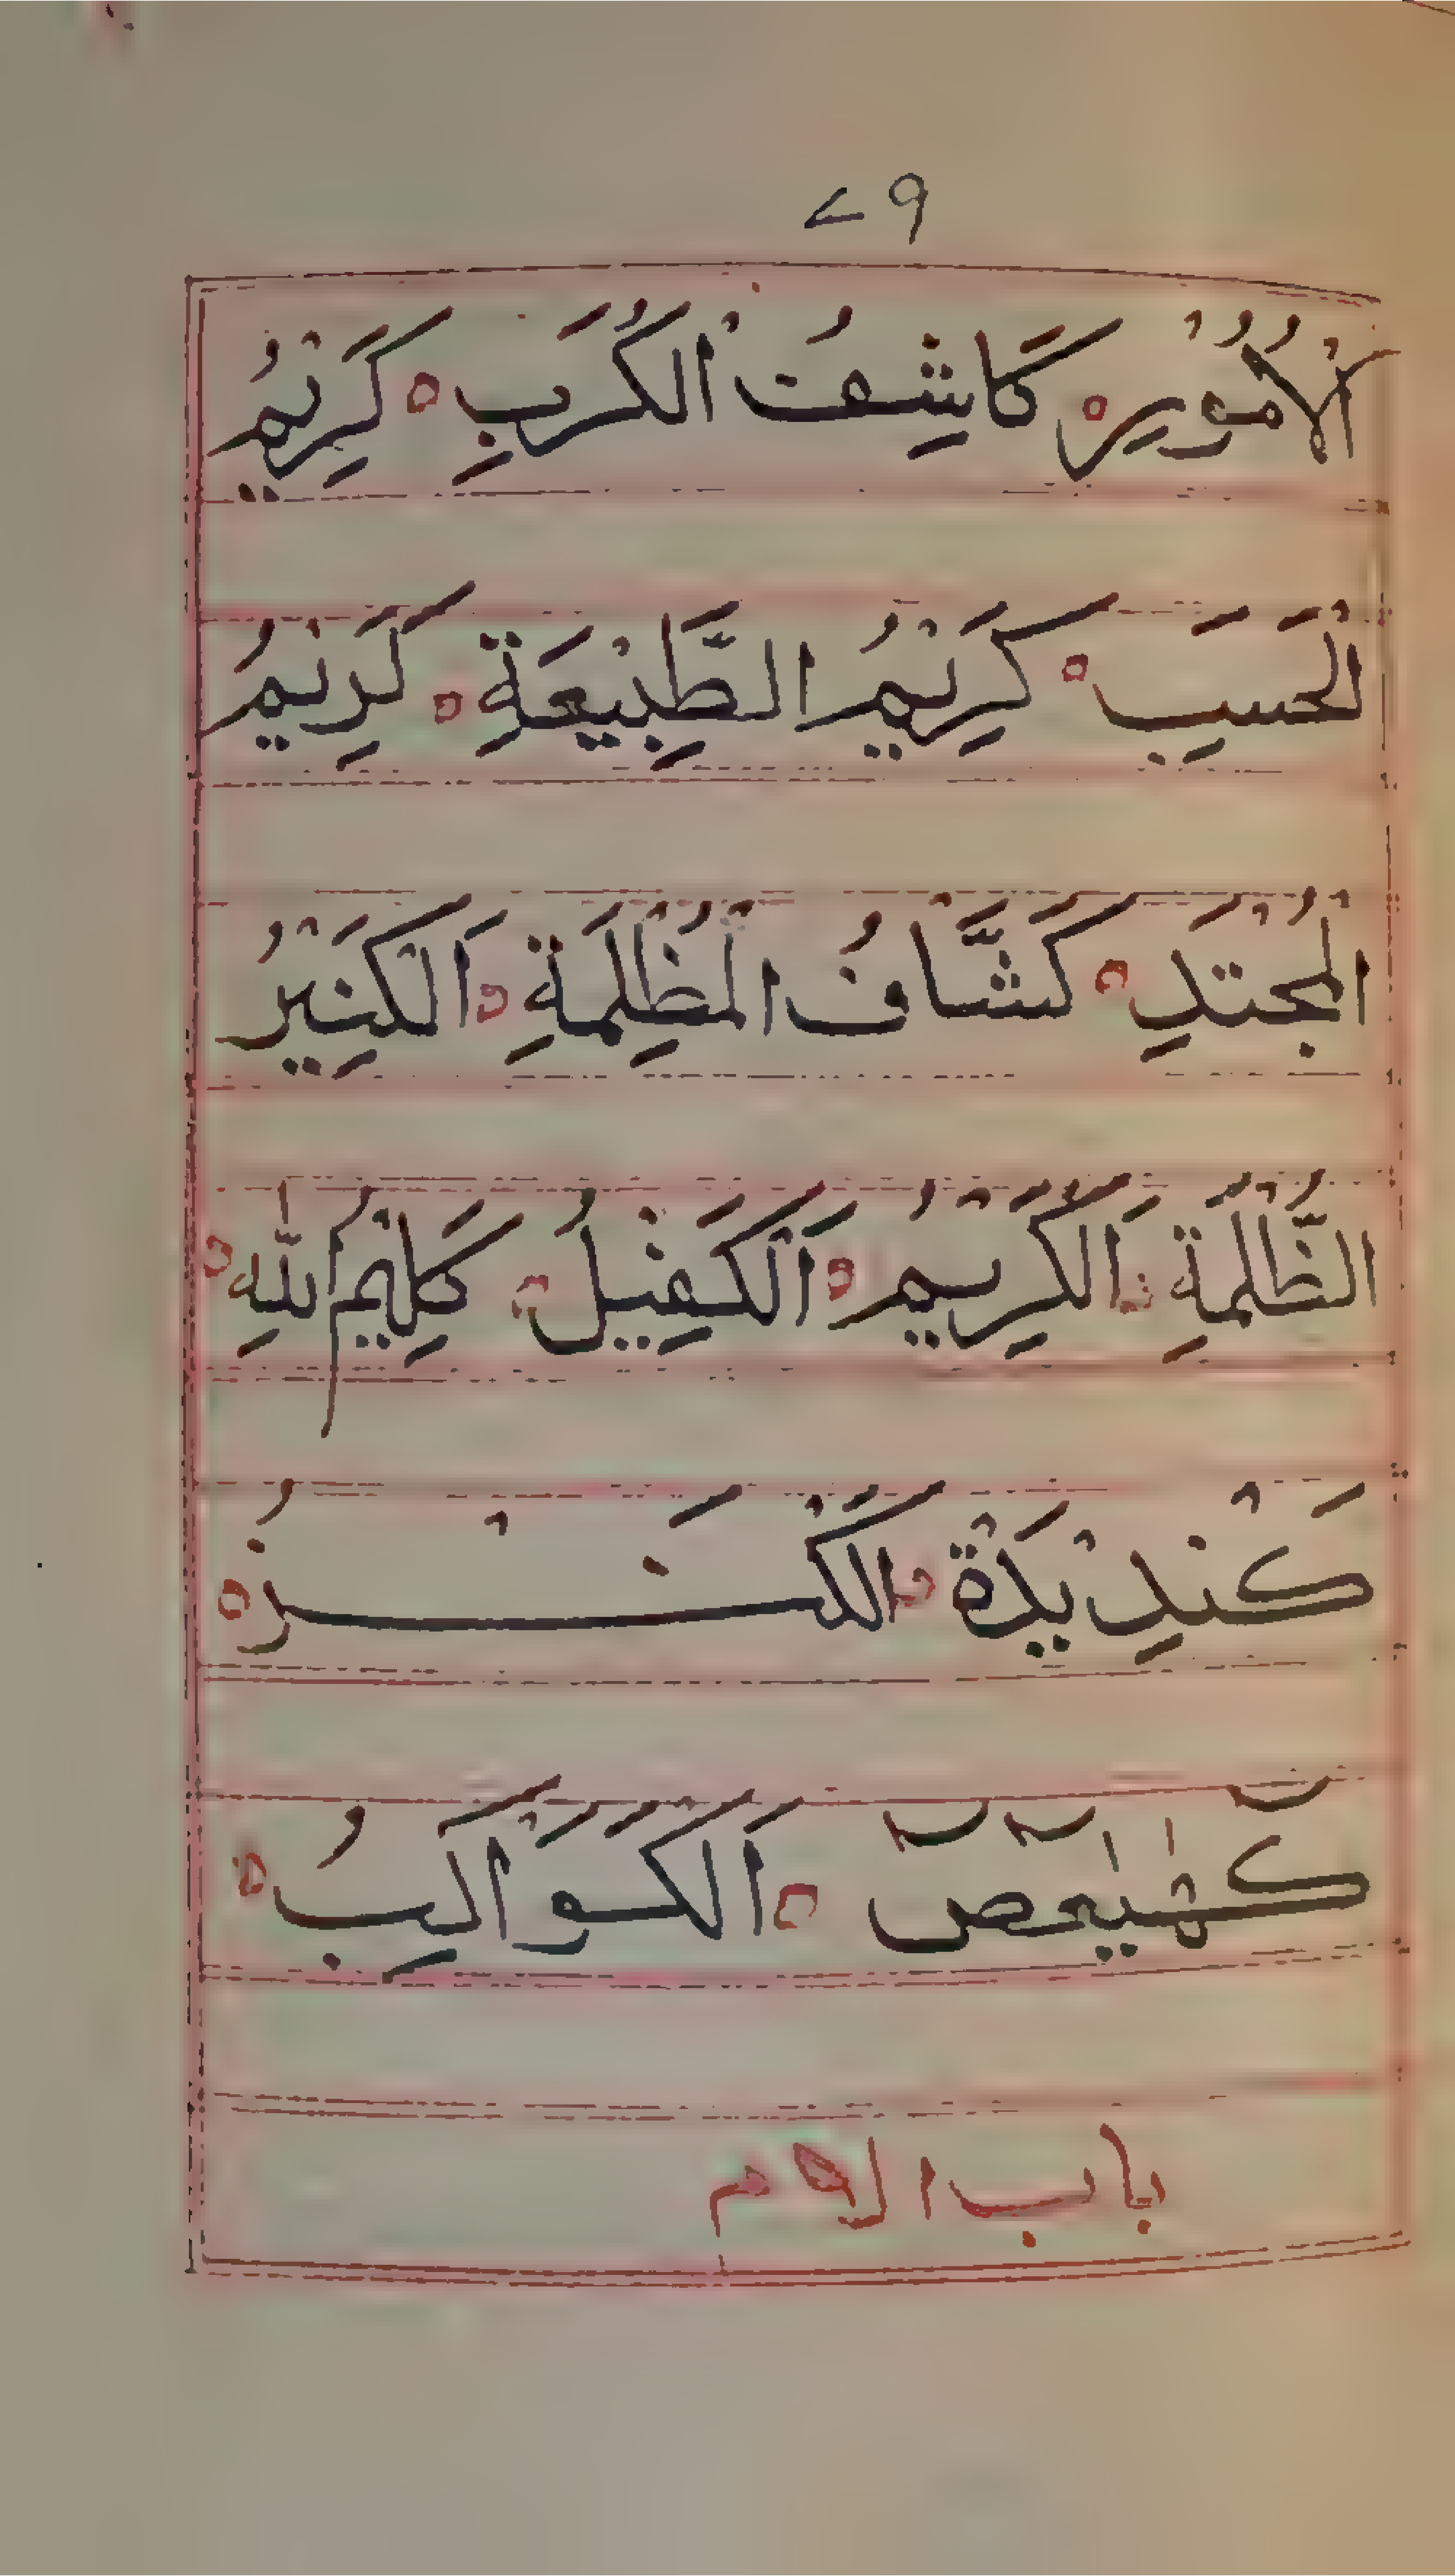 ۷۹
الْاُمُوْرِ ○ كَاشِفُ الْكُرَبِ ○ كَرِيْمُ
لْحَسَبِ ○ كَرِيْمُ الطَّبِيْعَةِ ○ كَرِيْمُ
الْمُجْتَدِ ○ كَشَّافُ الْمُظْلِمَةِ ○ اَلْكَبِيْرُ
الظُّلْمَةِ ○ اَلْكَرِيْمُ ○ اَلْكَفِيْلُ ○ كَلِيْمُ اللّٰهِ ○
كَنْدِيْدَةْ ○ الْكَنْزُ ○
كٓهٰيٰعٓصٓ ○ اَلْكَوَاكِبُ ○
باب الام